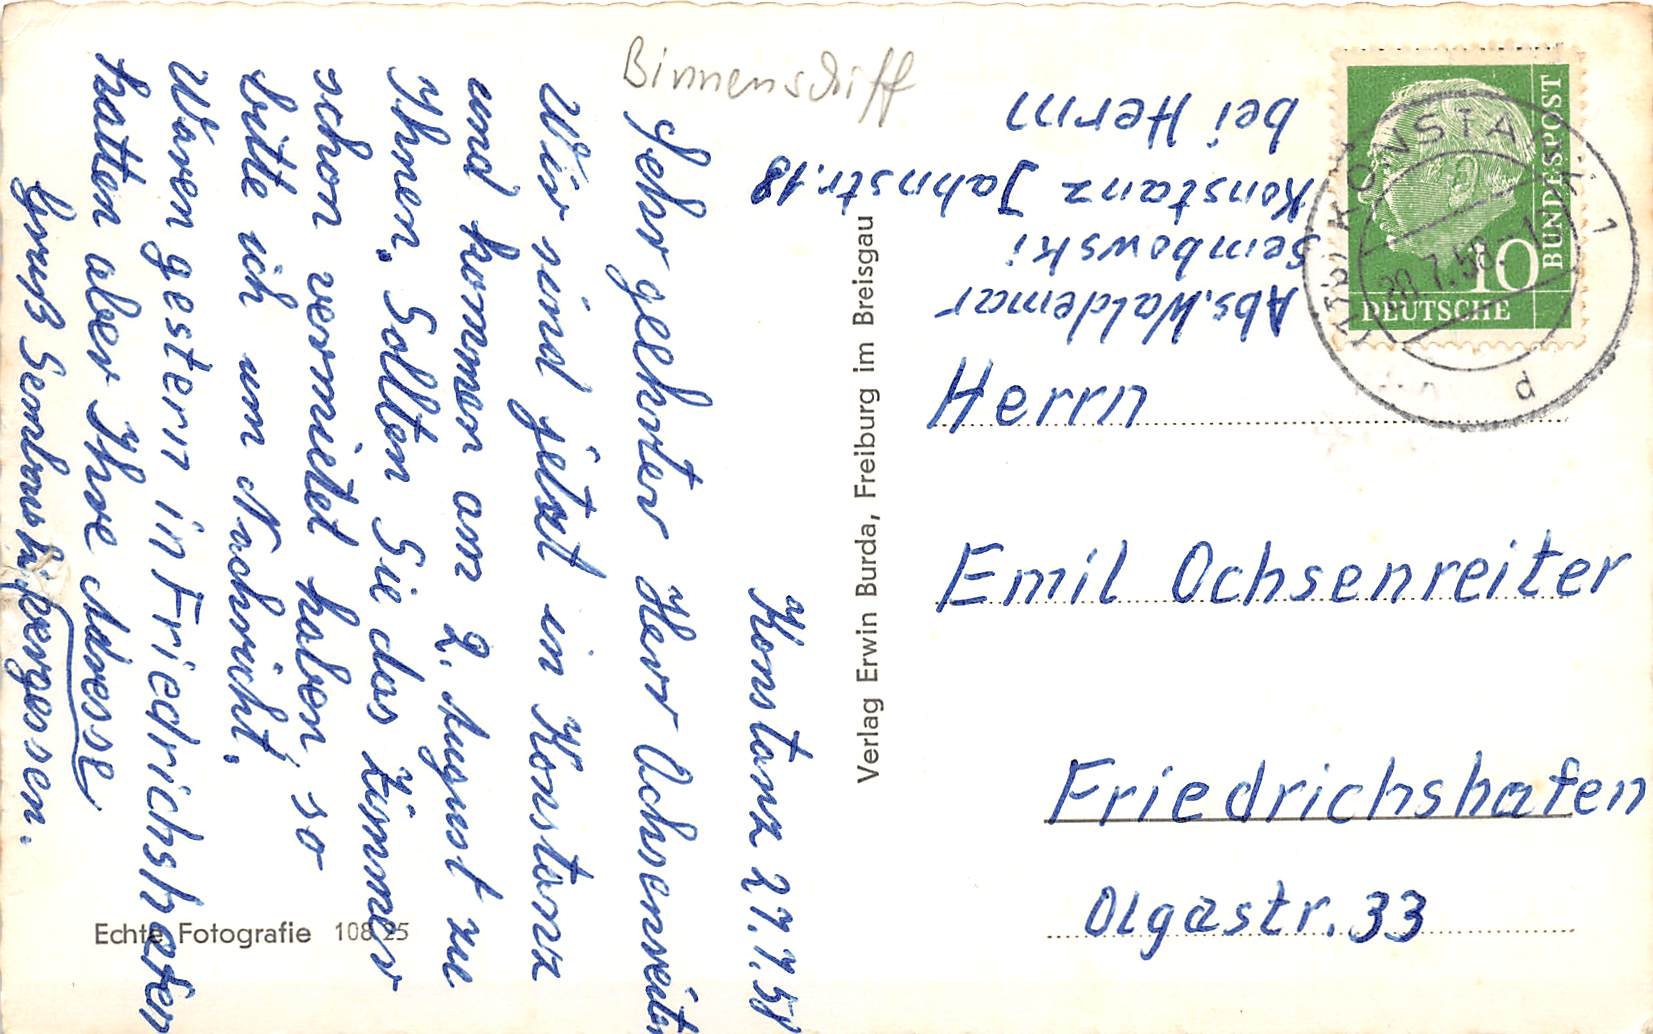 Binnenschiff
Konstanz 27.7.58
Sehr geehrter Herr Ochsenreiter
Wir sind jetzt in Konstanz
und kommen am 2. August zu
Ihnen. Sollten Sie das Zimmer
schon vermietet haben, so
bitte ich um Nachricht.
Waren gestern in Friedrichshafen
hatten aber Ihre Adresse
vergessen.
Gruß Sembowski
Abs. Waldemar
Sembowski
Konstanz Jahnstr. 18
bei Herm
Herrn
Emil Ochsenreiter
Friedrichshafen
Olgastr. 33
Verlag Erwin Burda, Freiburg im Breisgau
Echte Fotografie 108 25
DEUTSCHE
BUNDESPOST
10
KONSTANZ 1
d